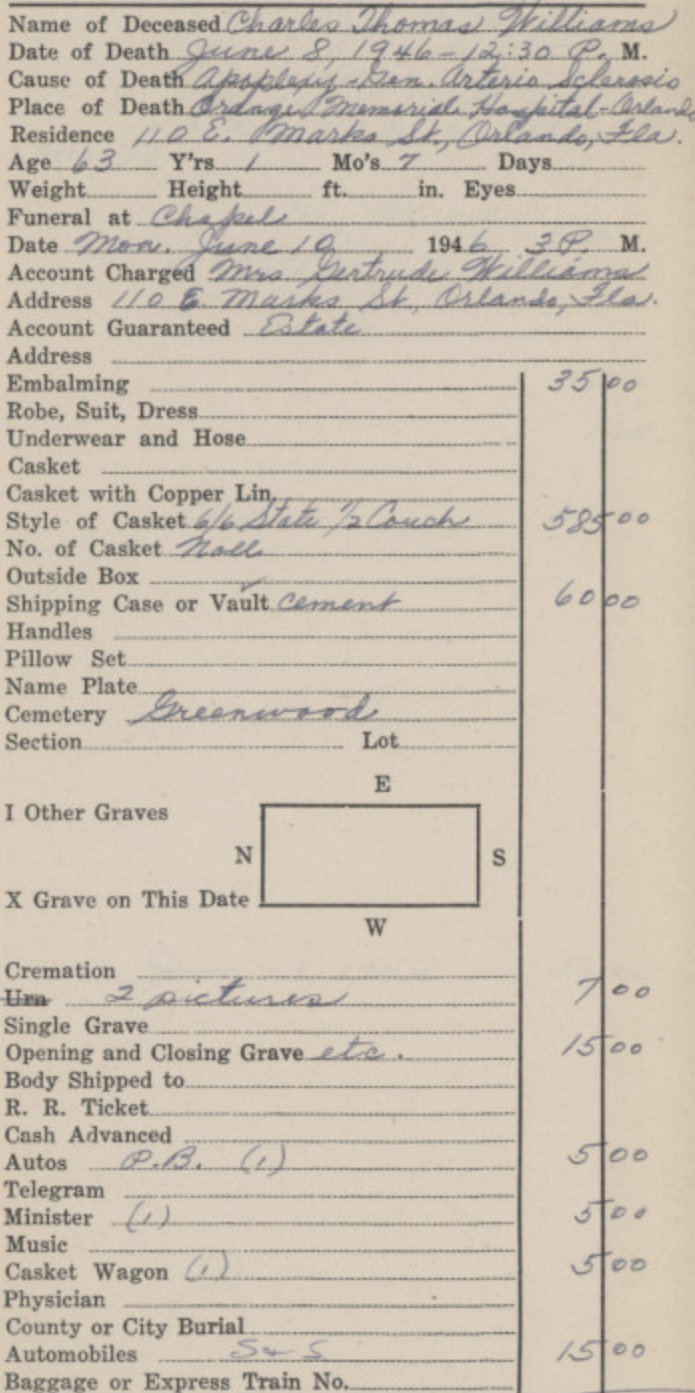 Name of Deceased Charles Thomas Williams
Date of Death June 8, 1946 - 12:30 P. M.
Cause of Death Apoplexy - Gen. Arterio Sclerosis
Place of Death Orange Memorial Hospital - Orlando
Residence 110 E. Marks St, Orlando, Fla.
Age 63 Y'rs 1 Mo's 7 Days
Weight Height ft. in. Eyes
Funeral at Chapel
Date Mon. June 10 1946 3 P. M.
Account Charged Mrs Gertrude Williams
Address 110 E. Marks St, Orlando, Fla.
Account Guaranteed Estate
Address
Embalming 35 00
Robe, Suit, Dress
Underwear and Hose
Casket
Casket with Copper Lin.
Style of Casket 6/6 State 1/2 Couch 585 00
No. of Casket Noll
Outside Box
Shipping Case or Vault Cement 60 00
Handles
Pillow Set
Name Plate
Cemetery Greenwood
Section Lot
E
I Other Graves
N S
X Grave on This Date
W
Cremation
Urn 2 pictures 7 00
Single Grave
Opening and Closing Grave etc. 15 00
Body Shipped to
R. R. Ticket
Cash Advanced
Autos P.B. (1) 5 00
Telegram
Minister (1) 5 00
Music
Casket Wagon (1) 5 00
Physician
County or City Burial
Automobiles S & S 15 00
Baggage or Express Train No.